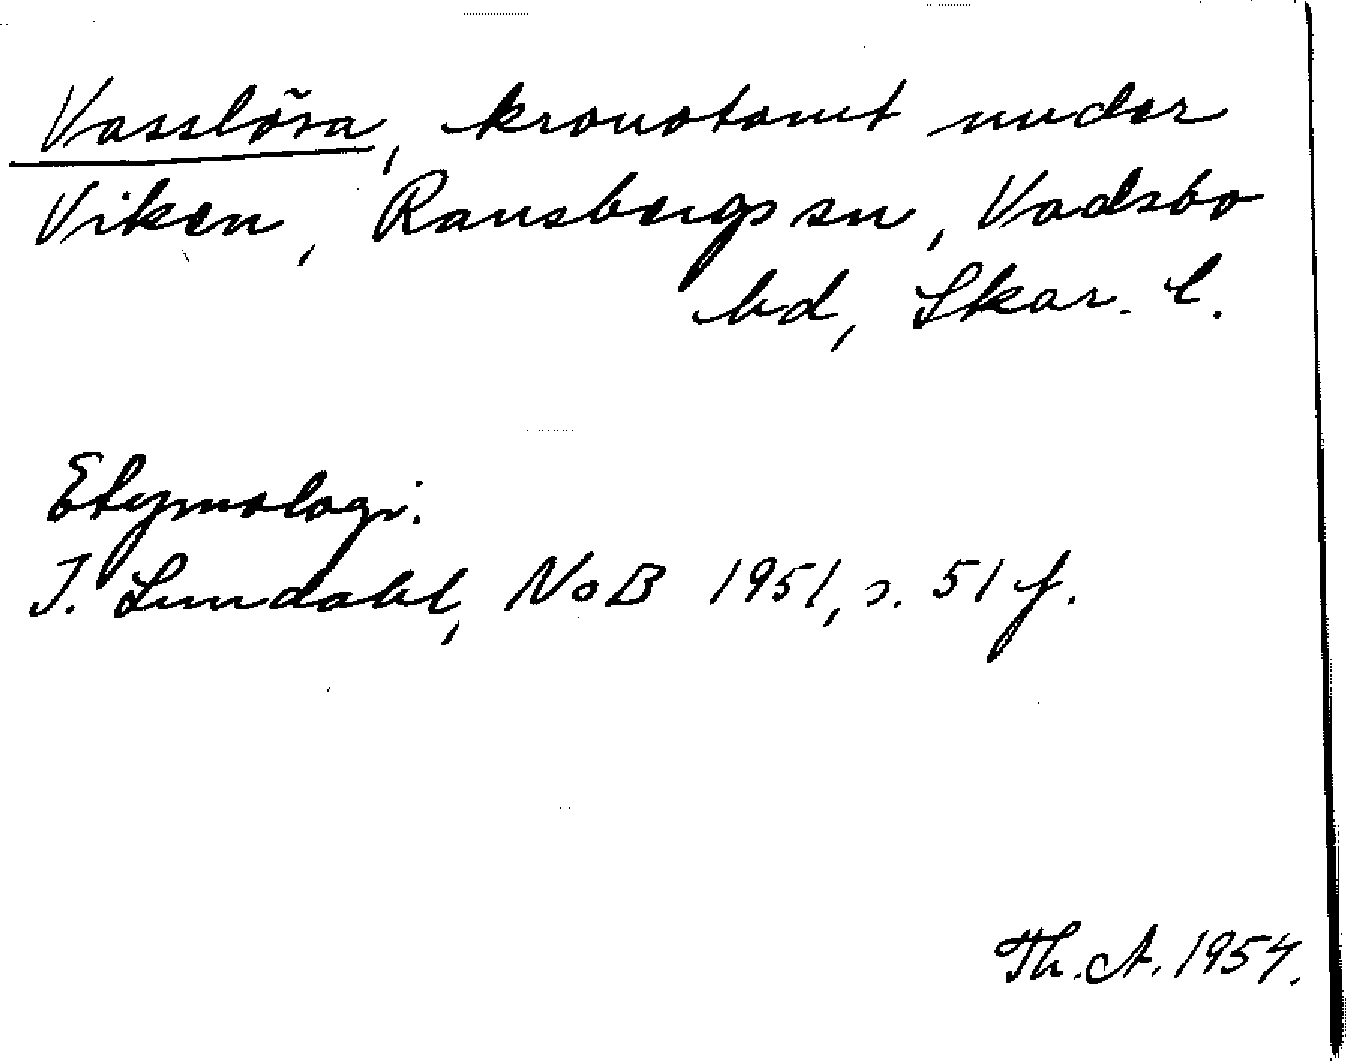 Vasslösa, kronotomt under
Viken, Ransbergs sn, Vadsbo
hd, Skar. l.
Etymologi.
I. Lundahl, NoB 1951, s. 51 f.
Th. A. 1954.